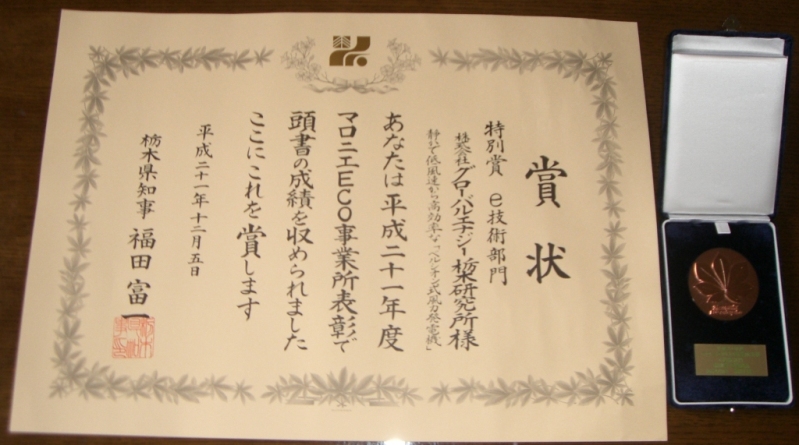 賞状
特別賞 e技術部門
株式会社グローバルエナジー栃木研究所様
静かで低風速から高効率な「ベルシオン式風力発電機」
あなたは平成二十一年度
マロニエECO事業所表彰で
頭書の成績を収められました
ここにこれを賞します
平成二十一年十二月五日
栃木県知事 福田富一